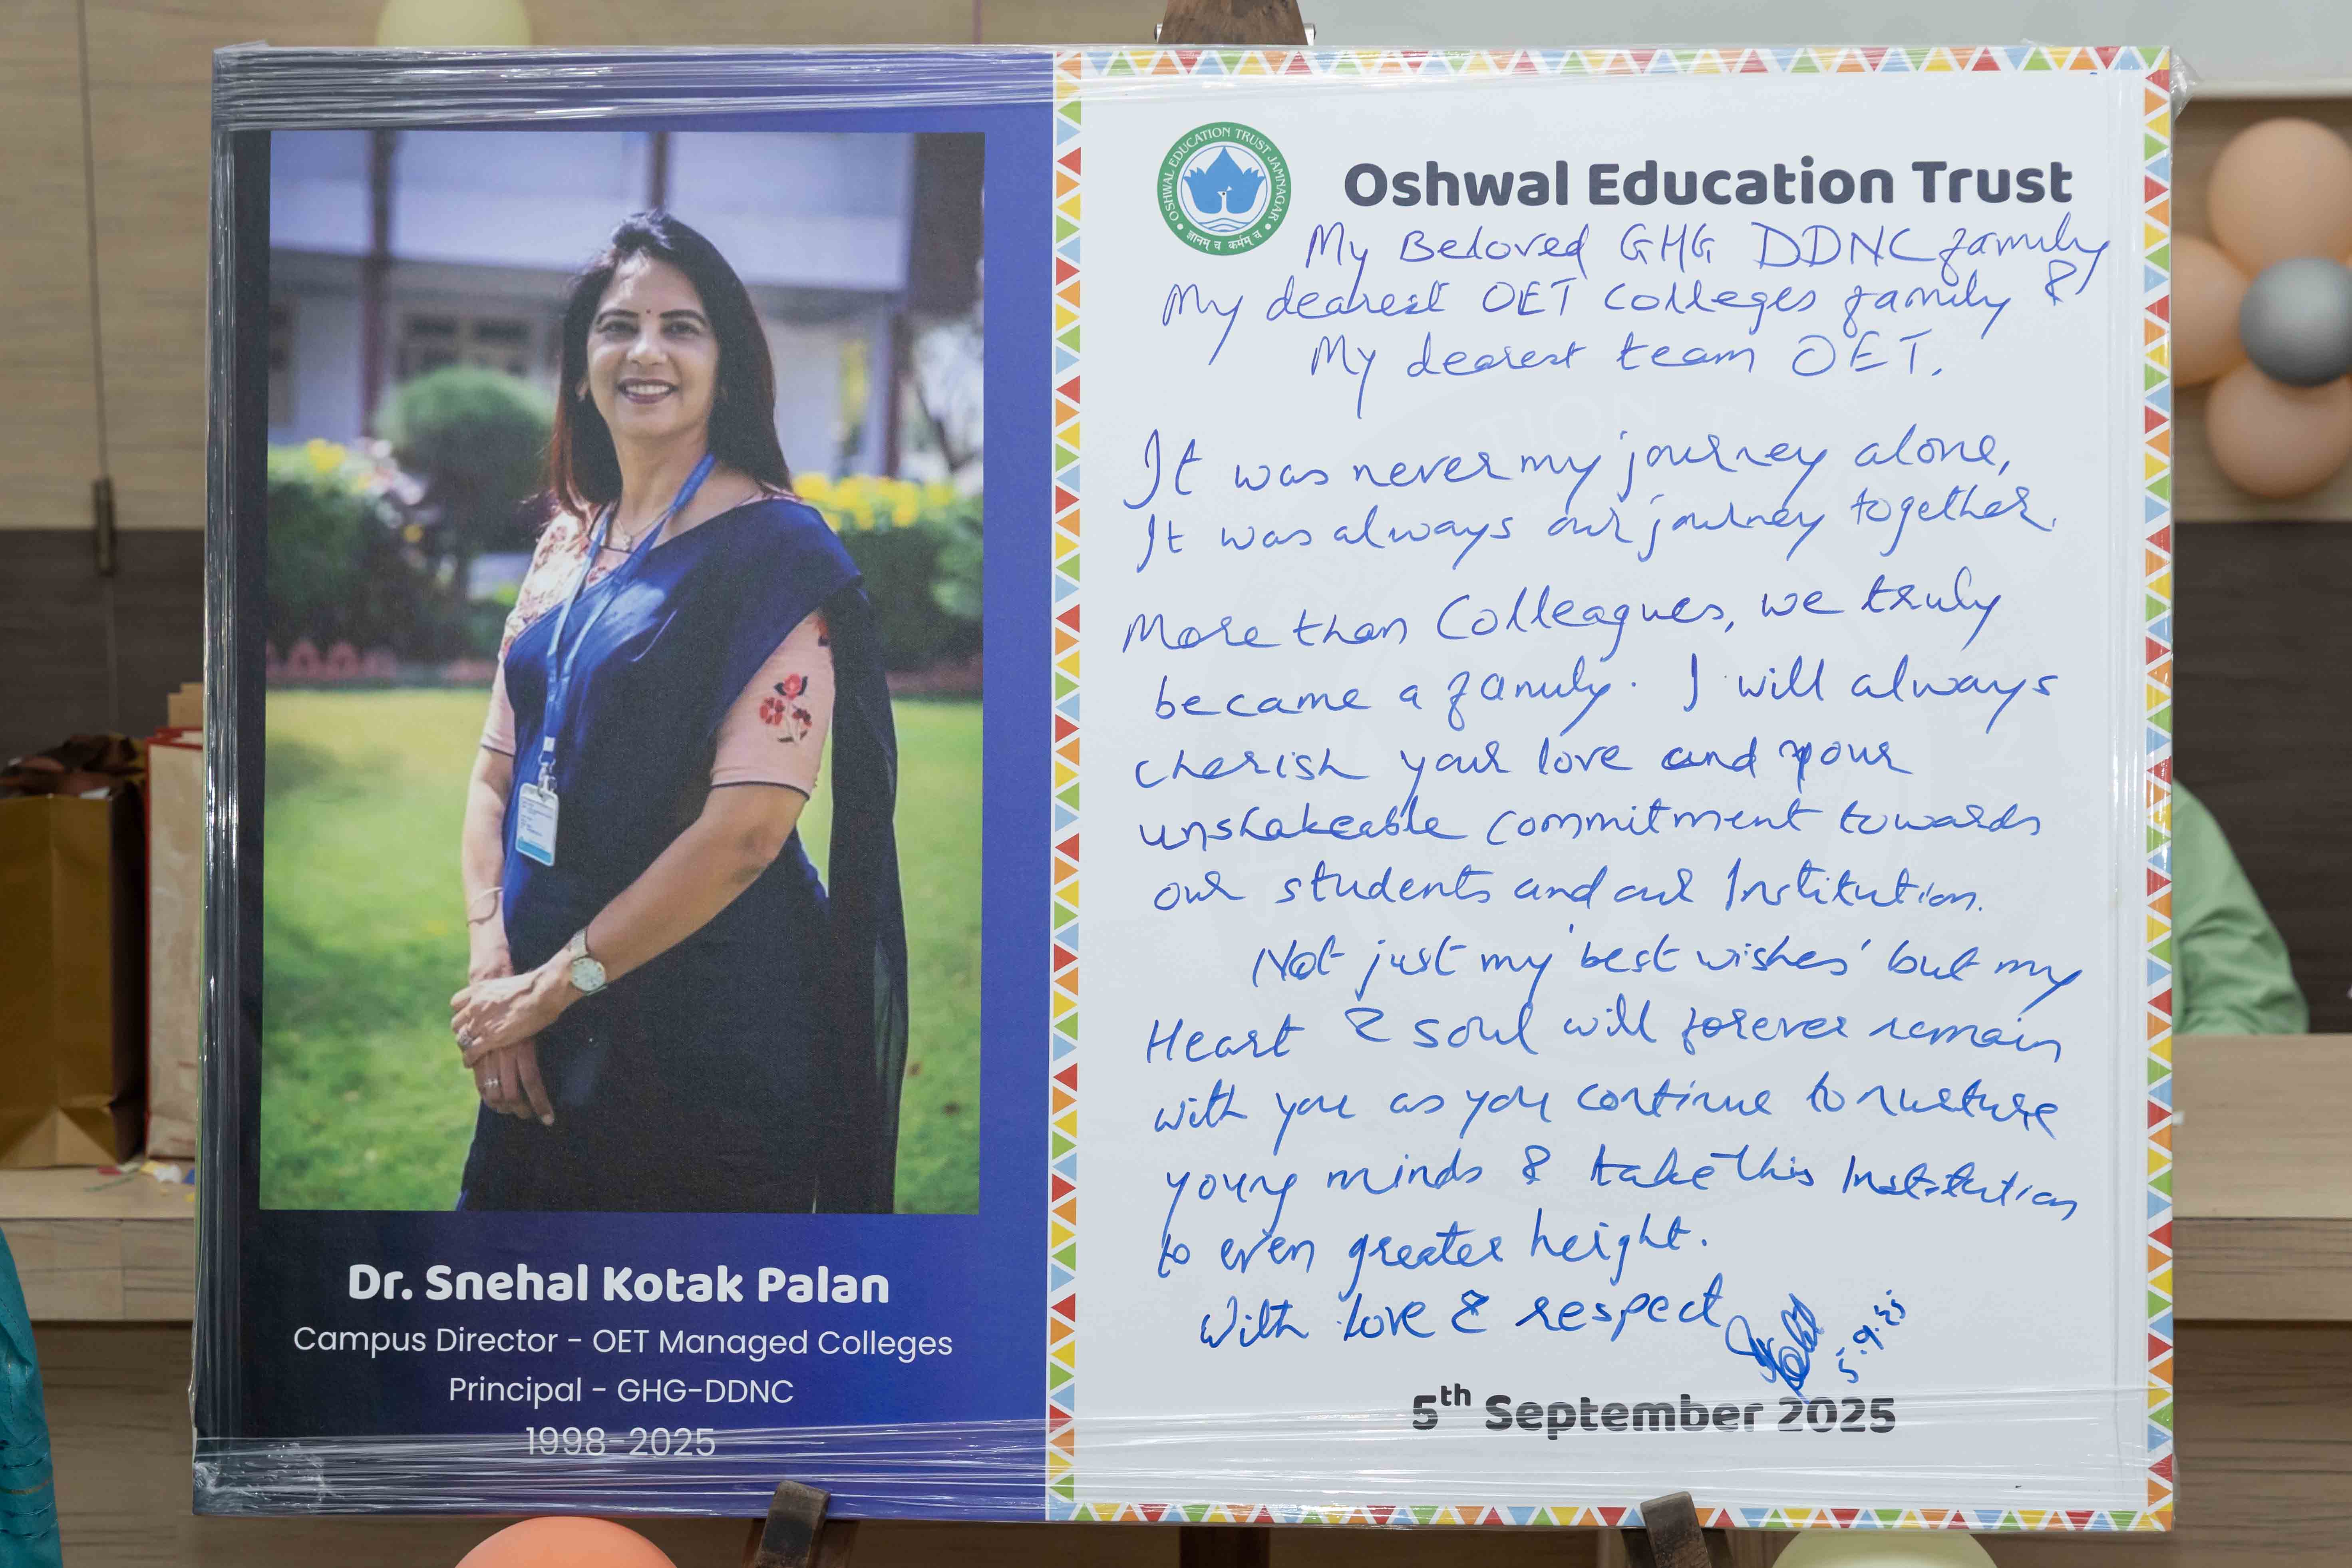 Dr. Snehal Kotak Palan
Campus Director - OET Managed Colleges
Principal - GHG-DDNC
1998-2025
OSHWAL EDUCATION TRUST JAMNAGAR
ज्ञानम् च कर्मम् च
Oshwal Education Trust
My Beloved GHG DDNC family
My dearest OET Colleges family &
My dearest team OET.
It was never my journey alone,
It was always our journey together.
More than Colleagues, we truly
became a family. I will always
cherish your love and your
unshakeable commitment towards
our students and our Institution.
Not just my 'best wishes' but my
Heart & soul will forever remain
with you as you continue to nurture
young minds & take this Institution
to even greater height.
With love & respect
5.9.25
5th September 2025